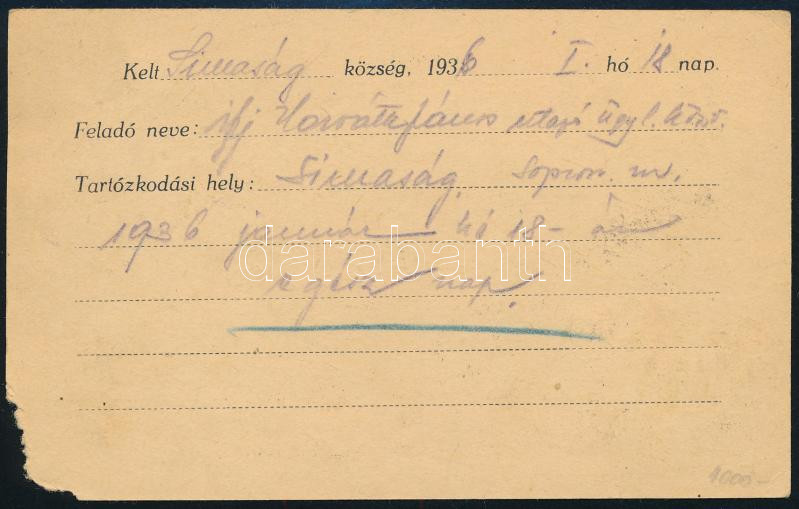 Kelt Simaság község, 1936 I. hó 18 nap.
Feladó neve: ifj Horváth János utazó ügyl. könö.
Tartózkodási hely: Simaság, Sopron. m.
1936 január hó 18-án
darabanth
egész nap.
1000-